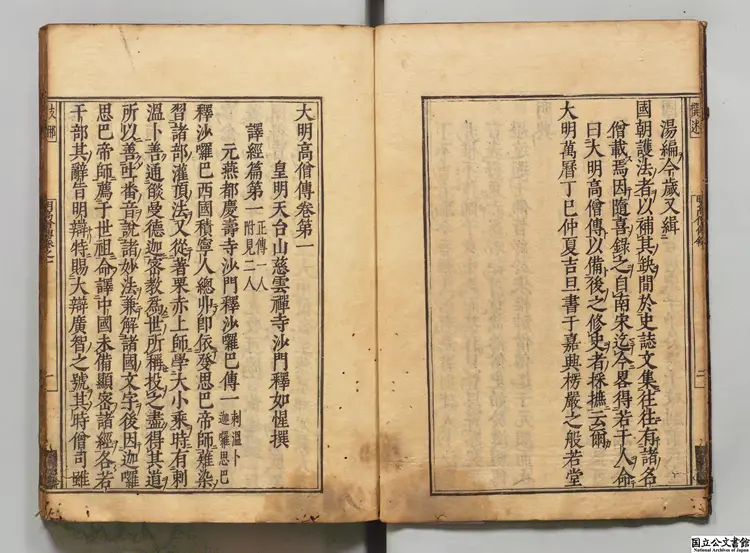 撰述
湯編今歲又緝
國朝護法者以補其缺間於史誌文集往往有諸名
僧載焉因隨喜錄之自南宋迄今畧得若干人命
曰大明高僧傳以備後之修史者採摭云爾
大明萬曆丁巳仲夏吉旦書于嘉興楞嚴之般若堂
大明高僧傳卷第一
皇明天台山慈雲禪寺沙門釋如惺撰
譯經篇第一 正傳一人 附見二人
元燕都慶壽寺沙門釋沙囉巴傳一 剌溫卜 迦囉思巴
釋沙囉巴西國積寧人總丱即依發思巴帝師薙染
習諸部灌頂法又從著栗赤上師學大小乘時有剌
溫卜善通燄曼德迦密教為世所稱投之盡得其道
所以善吐番音說諸妙法兼解諸國文字後因迦囉
思巴帝師薦于世祖命譯中國未備顯密諸經各若
干部其辭旨明辯特賜大辯廣智之號其時僧司雖
国立公文書館
National Archives of Japan